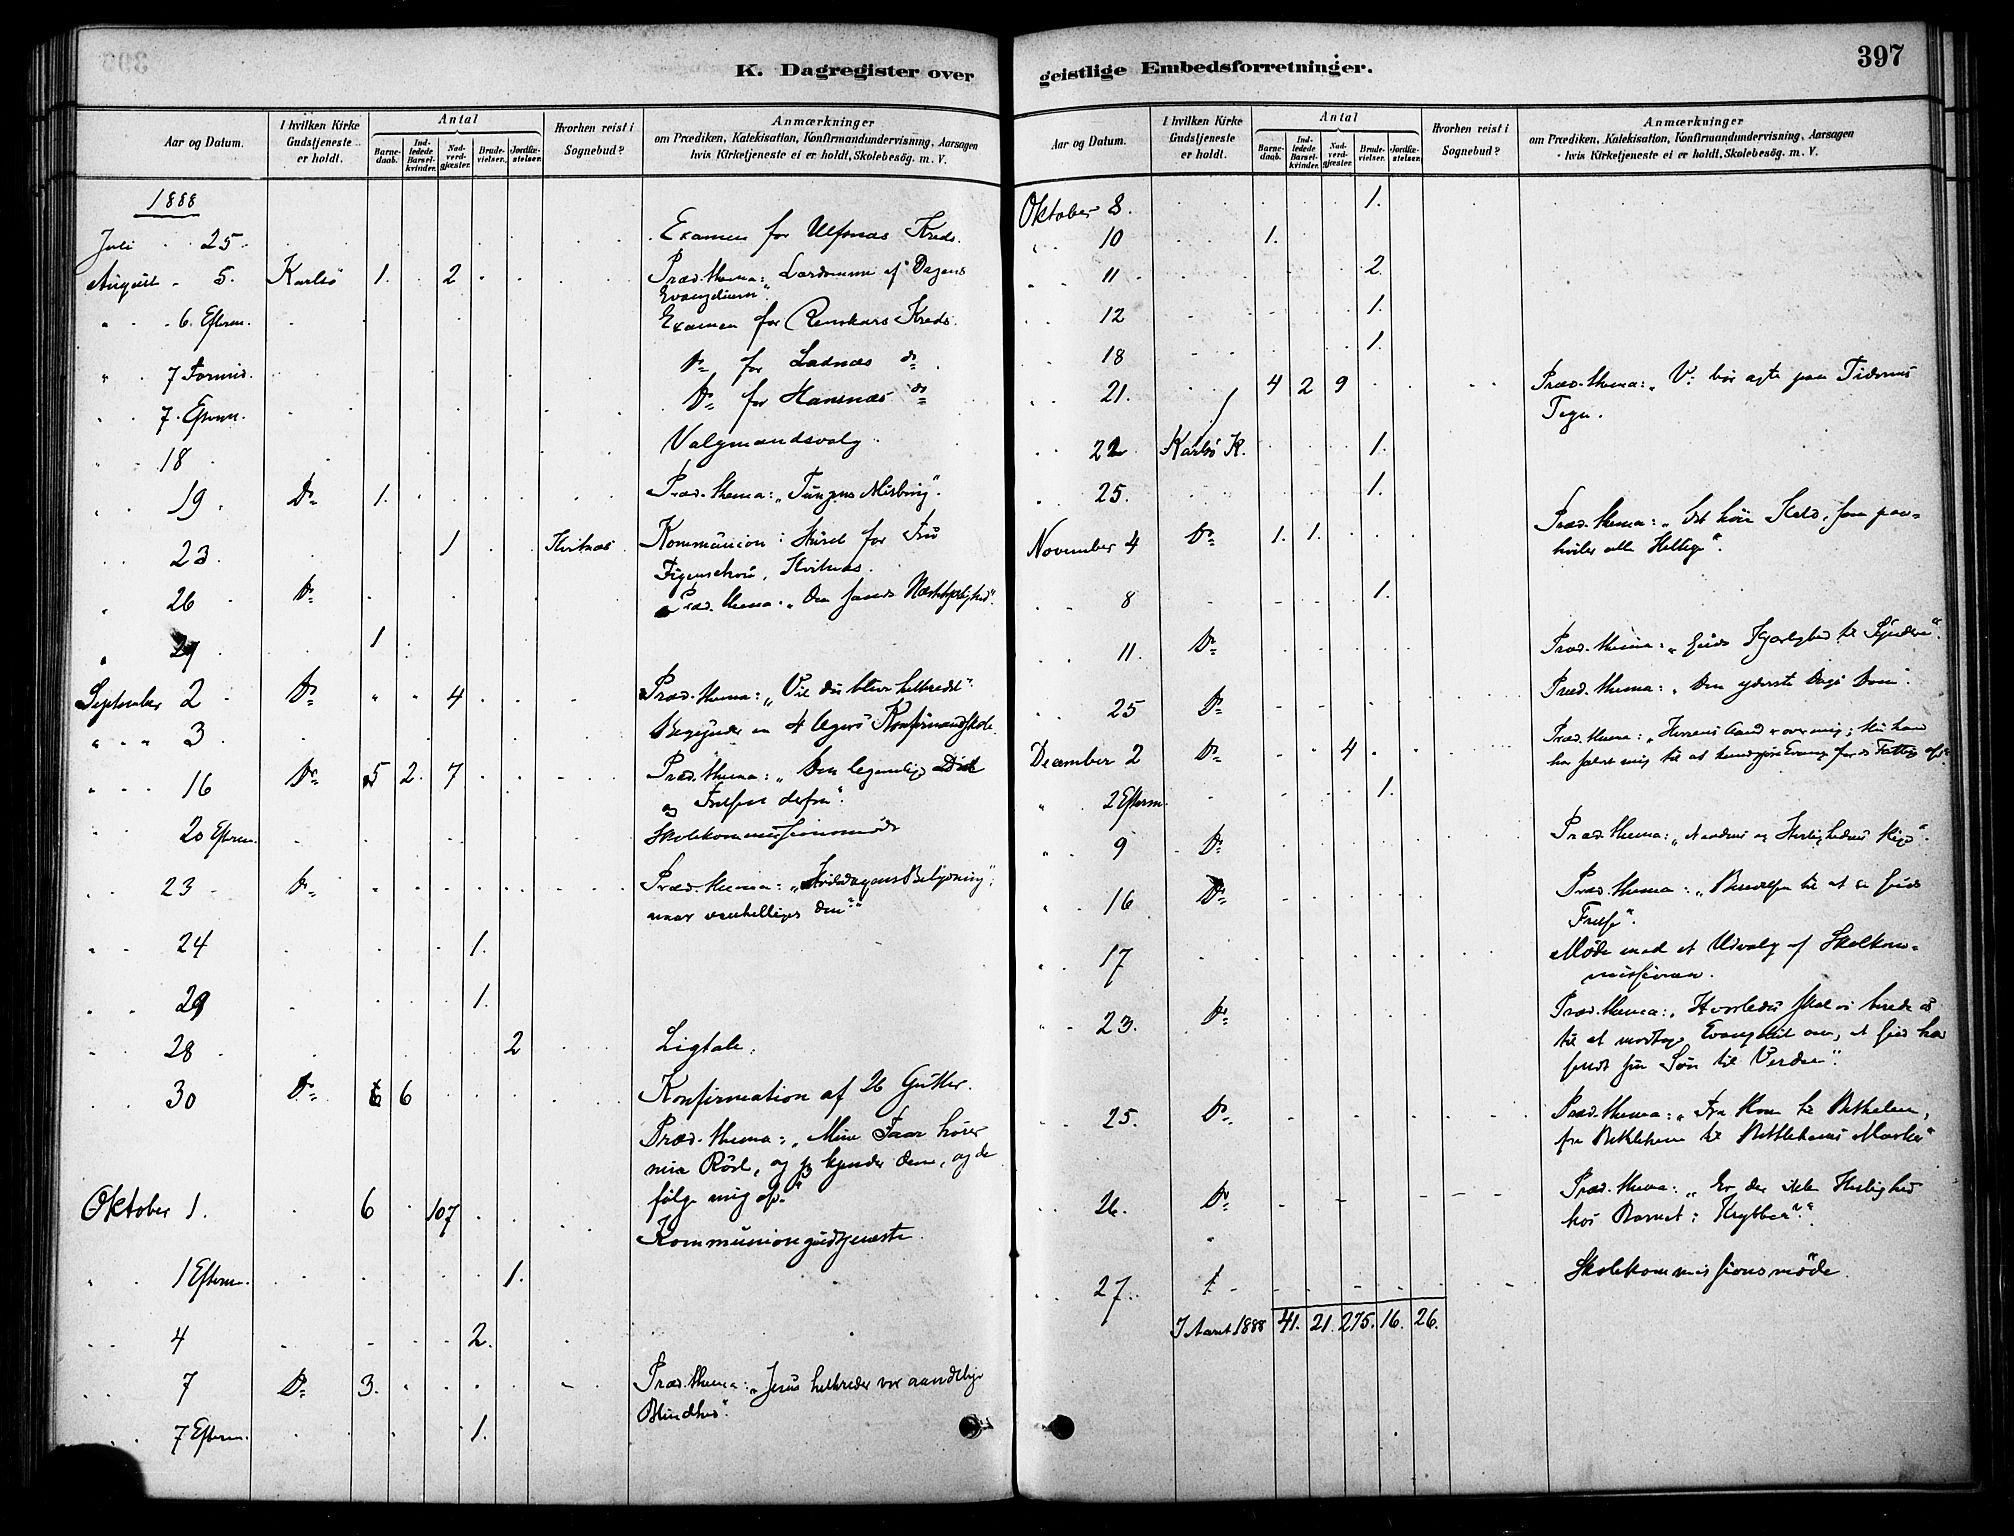 K. Dagregister over
Aar og Datum.
I hvilken Kirke Gudstjeneste er holdt.
Antal
Barnedaab.
Indledede Barselkvinder.
Nadverdgjæster.
Brudevielser.
Jordfæstelser.
Hvorhen reist i Sognebud?
Anmærkninger
om Prædiken, Katekisation, Konfirmandundervisning, Aarsagen
hvis Kirketjeneste ei er holdt, Skolebesög. m. V.
1888
Juli 25. Examen for Ulfsnæs Kreds.
August 5. Karlsö 1. 2 Præd. thema: Lærdomme af Dagens
Evangelium".
6. Efterm. Examen for Renskars Kreds.
7 Formid. Do for Ladnæs do
7. Efterm. Do for Hansnæs do
18 Valgmandsvalg
19 Do 1. Præd. thema: "Tungens Misbrug".
23 1 Hvitnæs Kommunion i Huset for Fru
Figenschou, Hvitnæs.
26 Do Præd. thema: "Den sande Næstekjærlighed".
29 1
September 2 Do 4 Præd. thema: "Vil du blive helbredet".
3 Begynder en 4 Ugers Konfirmandskole.
16 Do 5 2. 7 Præd. thema: "Den legemlige Död
og Frelsen derfra".
20 Efterm. Skolekommissionsmöde
23 Do Præd. thema: "Hviledagens Betydning,
naar vanhelliges den?"
24 1.
29 1.
28 2 Ligtale.
30 Do 6 6 Konfirmation af 26 Gutter.
Præd. thema: "Mine Faar hörer
min Röst, og jeg kjender dem, og de
fölge mig ef."
Oktober 1. 6 107 Kommuniongudtjeneste.
1 Efterm. 1.
4 2.
7 Do 3. Præd. thema: "Jesus helbreder vor aandelige
Blindhed".
7 Efterm. 1.
geistlige Embedsforretninger.
397
Aar og Datum.
I hvilken Kirke Gudstjeneste er holdt.
Antal
Barnedaab.
Indledede Barselkvinder.
Nadverdgjæster.
Brudevielser.
Jordfæstelser.
Hvorhen reist i Sognebud?
Anmærkninger
om Prædiken, Katekisation, Konfirmandundervisning, Aarsagen
hvis Kirketjeneste ei er holdt, Skolebesög. m. V.
Oktober 8. 1.
10 1.
11 2.
12 1.
18 1.
21. 4 2 9 Præd. thema: "Vi bör agte paa Tidernes
Tegn.
22 Karlsö K. 1.
25. 1.
November 4 Do 1. 1. Præd. thema: "Det höie Kald, som paa-
hviler alle Hellige".
8 1.
11. Do Præd. thema: "Guds Kjærlighed til Syndere".
25 Do Præd. thema: "Den yderste Dags Dom".
December 2 Do 4 Præd. thema: "Herrens Aand er over mig; thi han
har salvet mig til at kundgjöre Evang. for de Fattige
2 Efterm. 1.
9 Do Præd. thema: "Naadens og Herlighedens Rige".
16 Do Præd. thema: "til at se Guds
Frelse".
17 Möde med et Udvalg af Skolekom-
missionen.
23. Do Præd. thema: "Hvorledes skal vi berede os
til at modtage Evangeliet om, at Gud har
sendt sin Sön til Verden".
25. Do Præd. thema: "Fra Rom til Bethlehem,
fra Bethlehem til Bethlehems Marker"
26. Do Præd. thema: "Er der ikke Herlighed
hos Barnet i Krybben?"
27. Skolekommissionsmöde.
I Aaret 1888 41. 21. 275. 16. 26.